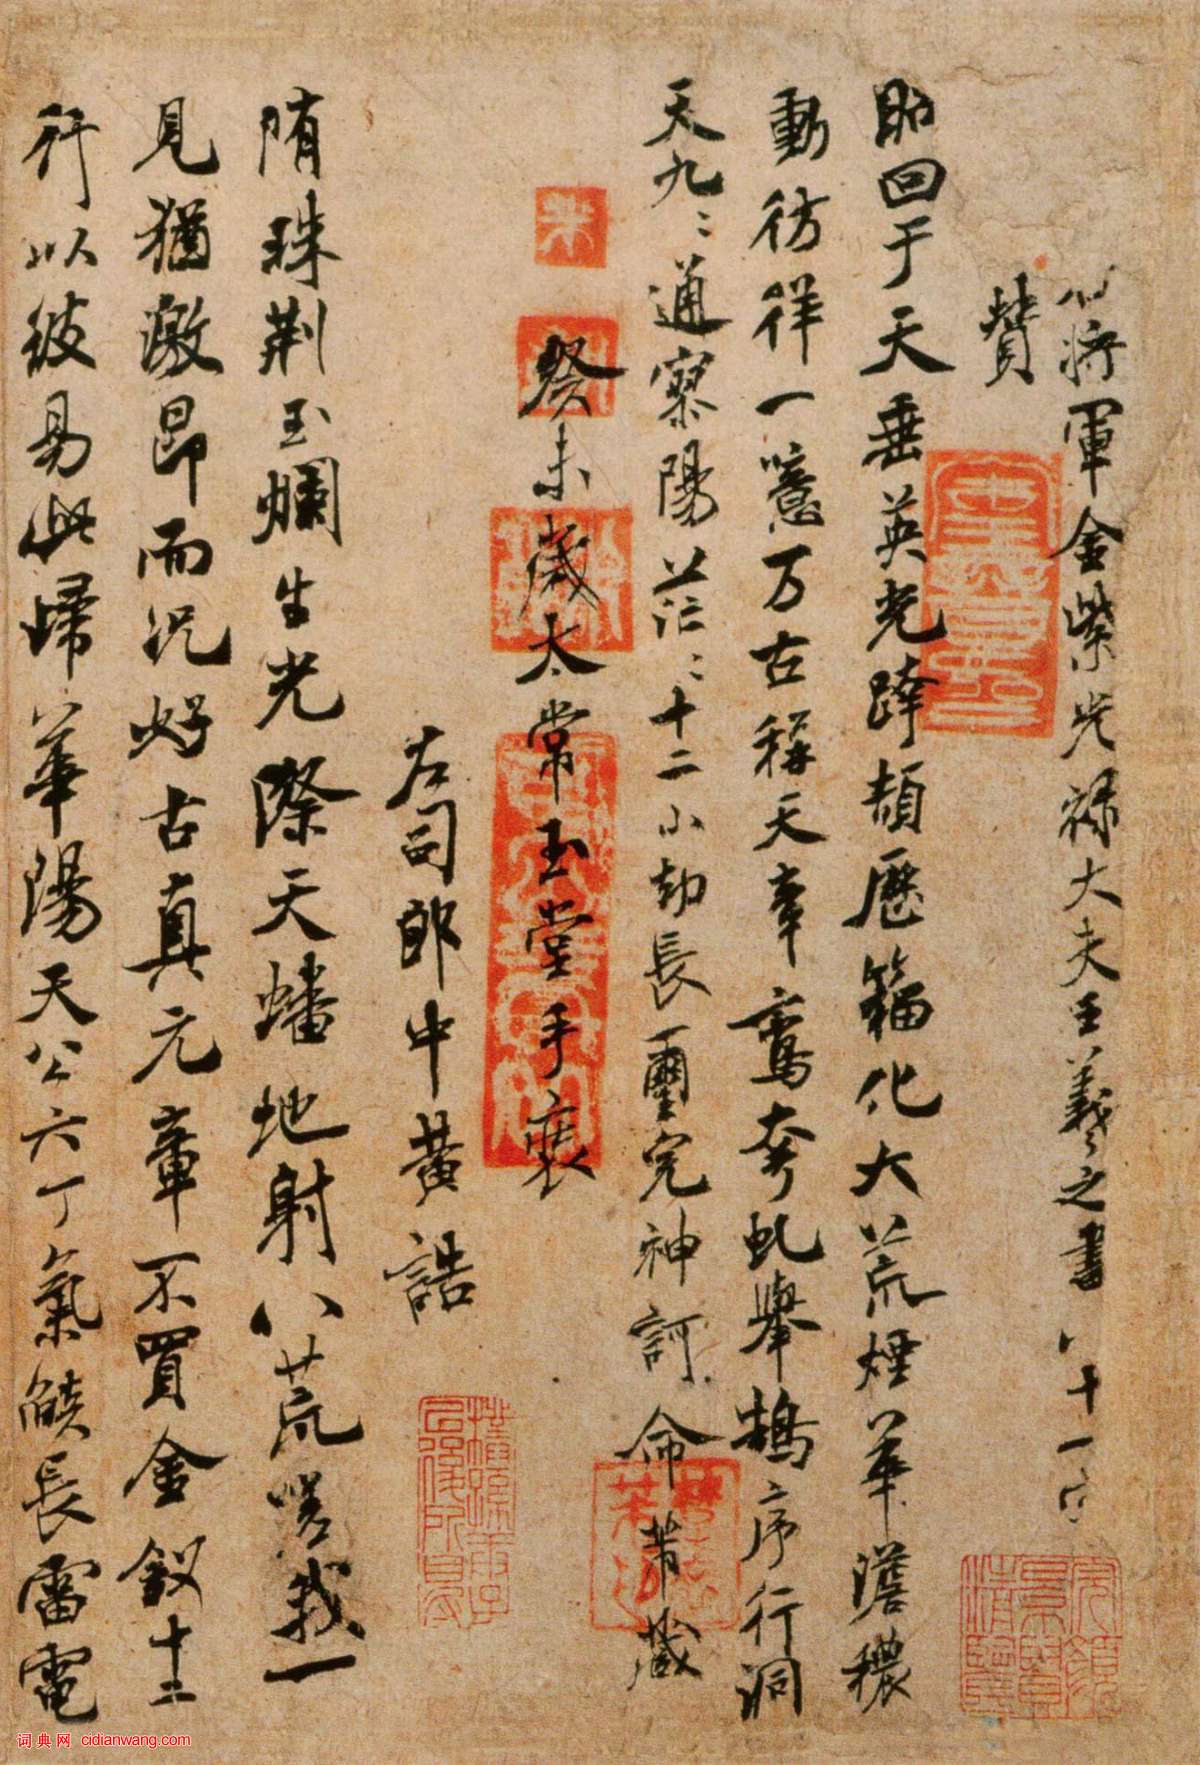 右將軍金紫光祿大夫王羲之書 八十一字
贊
昭回于天垂英光跨頡歷籀化大荒煙華澹穠
動彷彿一噫万古稱天章鸞夸虬舉鵠序行洞
天九〻通寥陽茫〻十二小劫長璽完神訶命芾藏
癸未歲太常玉堂手裝
左司郎中黃誥
隋珠荊玉爛生光際天蟠地射八荒嗟我一
見猶激昂而況好古真元章不買金釵十二
行以彼易此歸華陽天公六丁氣燄長雷電
词典网 cidianwang.com